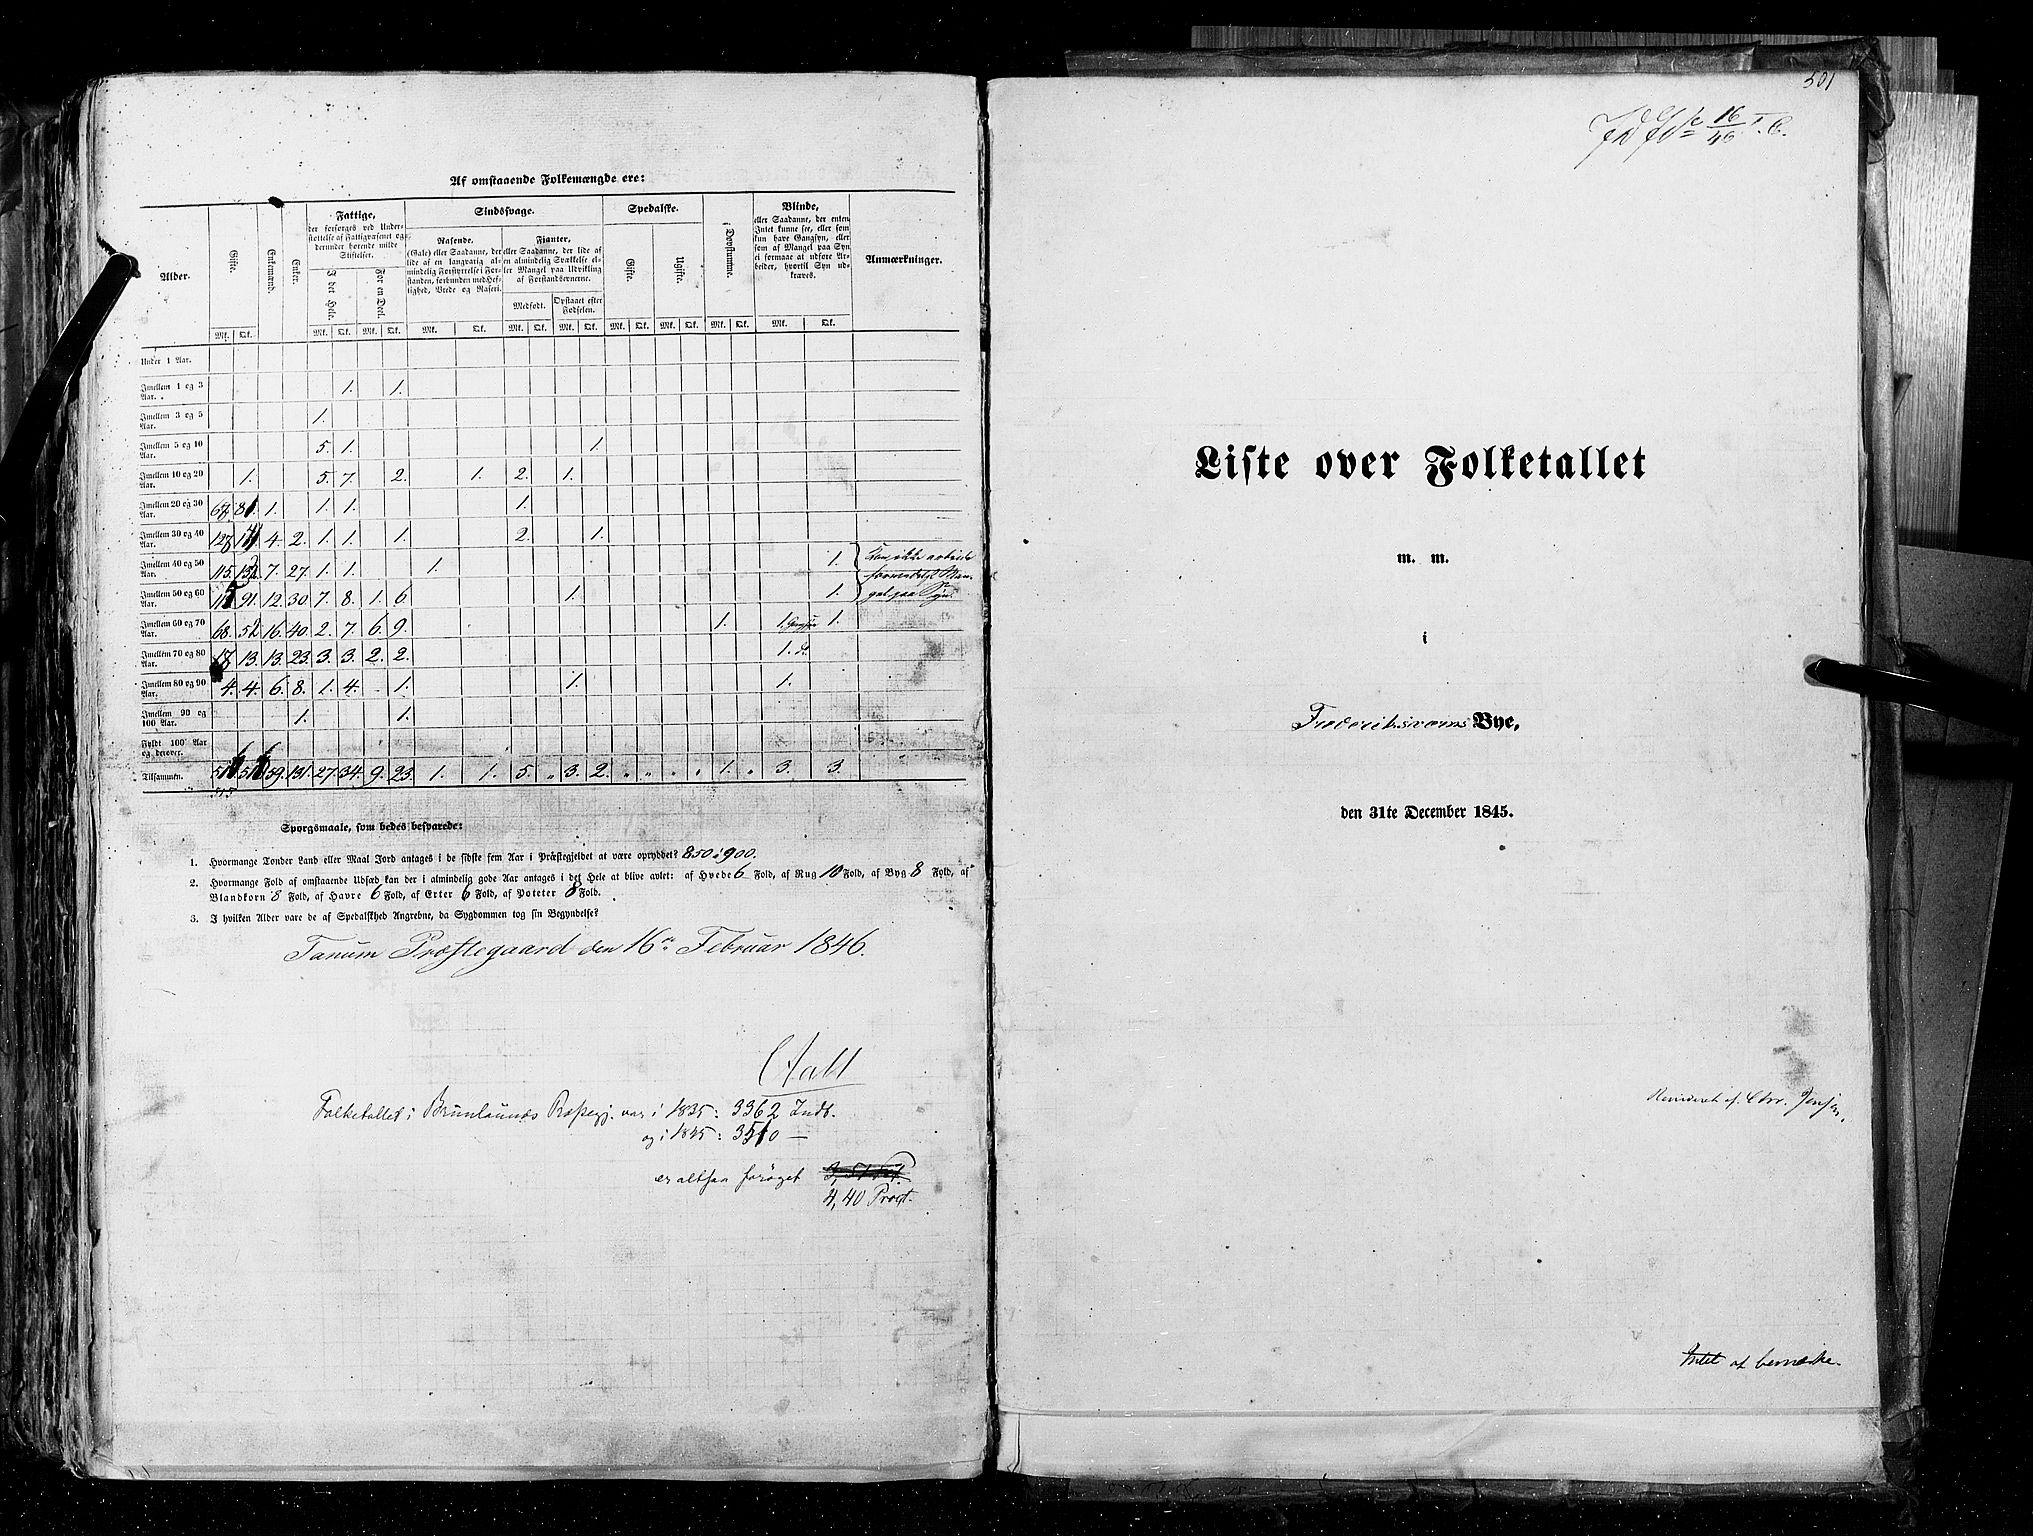 Af omstaaende Folkemængde ere:
Alder.
Gifte.
Enkemænd.
Enker.
Fattige,
der forsørges ved Under-
støttelse af Fattigvæsenet og
derunder hørende milde
Stiftelser.
I det Hele.
For en Deel.
Sindssvage.
Rasende.
(Gale) eller Saadanne, der
lide af en langvarig al-
mindelig Forstyrrelse i For-
standen, forbunden med Hef-
tighed, Vrede og Raseri.
Fianter,
eller Saadanne, der lide af
en almindelig Svækkelse el-
ler Mangel paa Udvikling
af Forstandsevnerne.
Medfødt.
Opstaaet efter
Fødselen.
Spedalske.
Gifte.
Ugifte.
Døvstumme.
Blinde,
eller Saadanne, der enten
Intet kunne see, eller som
kun have Gangsyn, eller
som af Mangel paa Syn
ei formaae at udføre Ar-
beider, hvortil Syn ud-
kræves.
Anmærkninger.
Mk. Qk. Mk. Qk. Mk. Qk. Mk. Qk. Mk. Qk. Mk. Qk. Mk. Qk. Mk. Qk. Mk. Qk. Mk. Qk.
Under 1 Aar.
Imellem 1 og 3 Aar. 1. 1.
Imellem 3 og 5 Aar. 1.
Imellem 5 og 10 Aar. 5. 1. 1.
Imellem 10 og 20 Aar. 1. 5. 7. 2. 1. 2. 1.
Imellem 20 og 30 Aar. 81. 1. 1. 1. 1.
Imellem 30 og 40 Aar. 4. 2. 1. 1. 1. 2. 1.
Imellem 40 og 50 Aar. 115. 132. 7. 27. 1. 1. 1. 1. Kan ikke arbeide
Imellem 50 og 60 Aar. 91. 12. 30. 7. 8. 1. 6. 1. 1. gel paa Syn.
Imellem 60 og 70 Aar. 68. 52. 16. 40. 2. 7. 6. 9. 1. 1. Gangsyn 1.
Imellem 70 og 80 Aar. 17. 13. 13. 23. 3. 3. 2. 2. 1. d.
Imellem 80 og 90 Aar. 4. 4. 6. 8. 1. 4. 1. 1. 1.
Imellem 90 og 100 Aar. 1. 1.
Fyldt 100 Aar og derover.
Tilsammen. 516 516 59. 131. 27. 34. 9. 23. 1. 1. 5. „ 3. 2. „ „ „ „ 1. „ 3. 3.
515
Spørgsmaale, som bedes besvarede:
1. Hvormange Tønder Land eller Maal Jord antages i de sidste fem Aar i Præstegjeldet at være opryddet? 850 à 900.
2. Hvormange Fold af omstaaende Udsæd kan der i almindelig gode Aar antages i det Hele at blive avlet: af Hvede 6 Fold, af Rug 10 Fold, af Byg 8 Fold, af
Blandkorn 8 Fold, af Havre 6 Fold, af Erter 6 Fold, af Poteter 8 Fold.
3. I hvilken Alder vare de af Spedalskhed Angrebne, da Sygdommen tog sin Begyndelse?
Tanum Præstegaard den 16de Februar 1846.
Folketallet i Brunlaunæs Præstegj. var i 1835: 3362 Indb.
og i 1845: 3510 —
er altsaa forøget 3,51 Prct.
4,40 Proct.
501
16
46
Liste over Folketallet
m. m.
i
Frederiksværns Bye,
den 31te December 1845.
Revideret af Chr. Jensen.
Intet at bemærke.